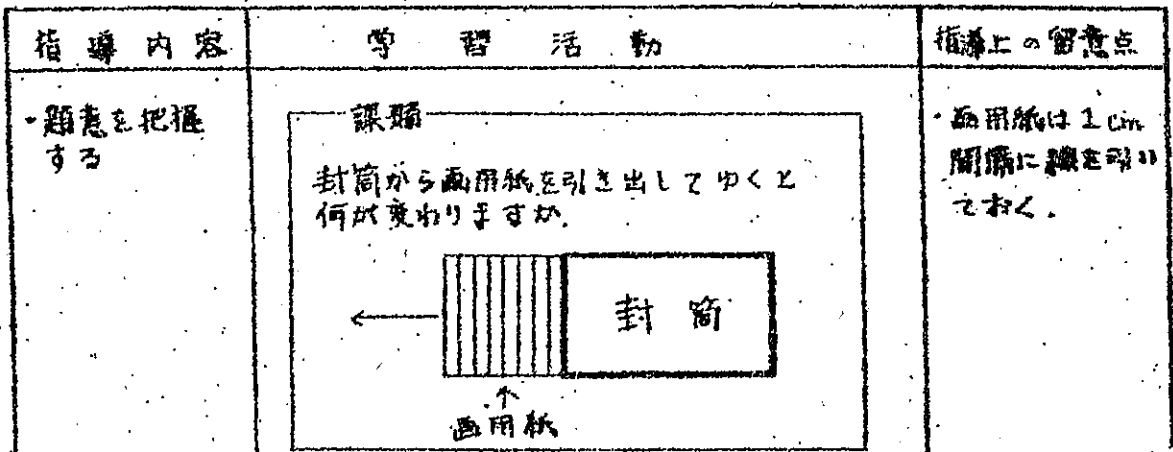 指導内容
学習活動
指導上の留意点
・題意を把握
する
課題
封筒から画用紙を引き出してゆくと
何が変わりますか.
封筒
画用紙
・画用紙は1cm
間隔に線を引い
ておく.